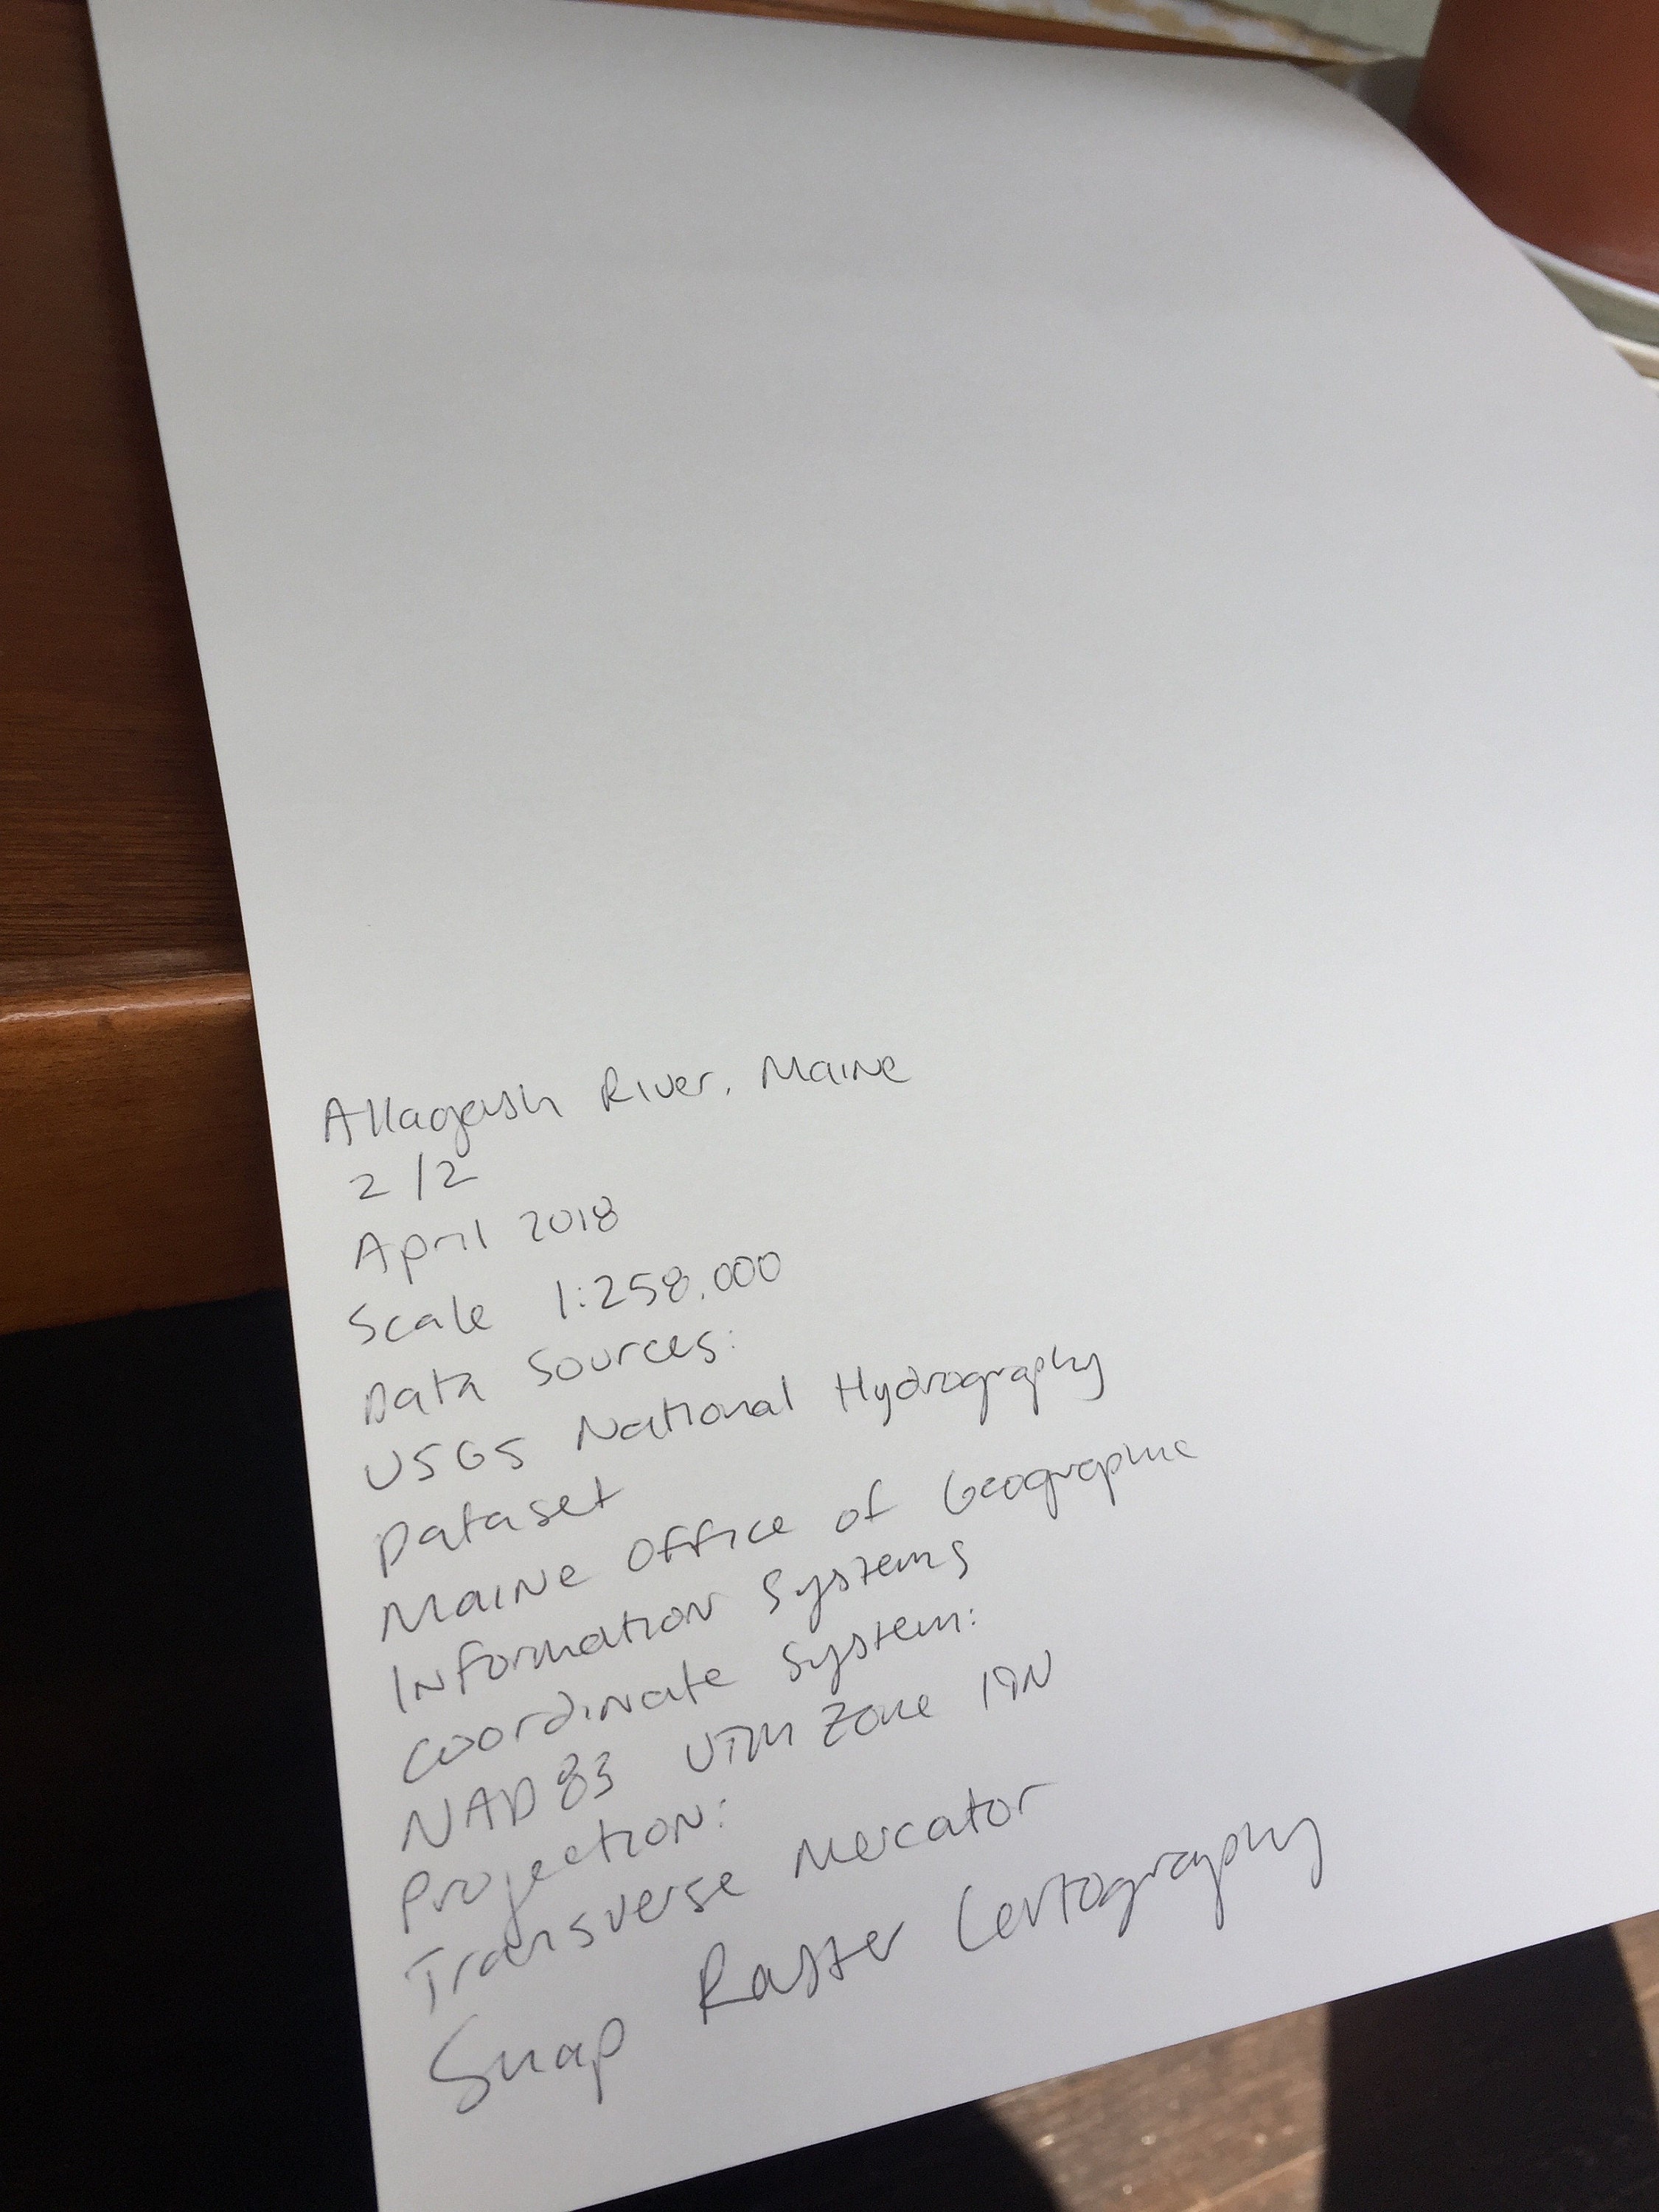 Allagash River, Maine
2/2
April 2018
Scale 1:258,000
Data Sources:
USGS National Hydrography
Dataset
Maine Office of Geographic
Information Systems
Coordinate System:
NAD83 UTM Zone 19N
Projection:
Transverse Mercator
Snap Raster Cartography